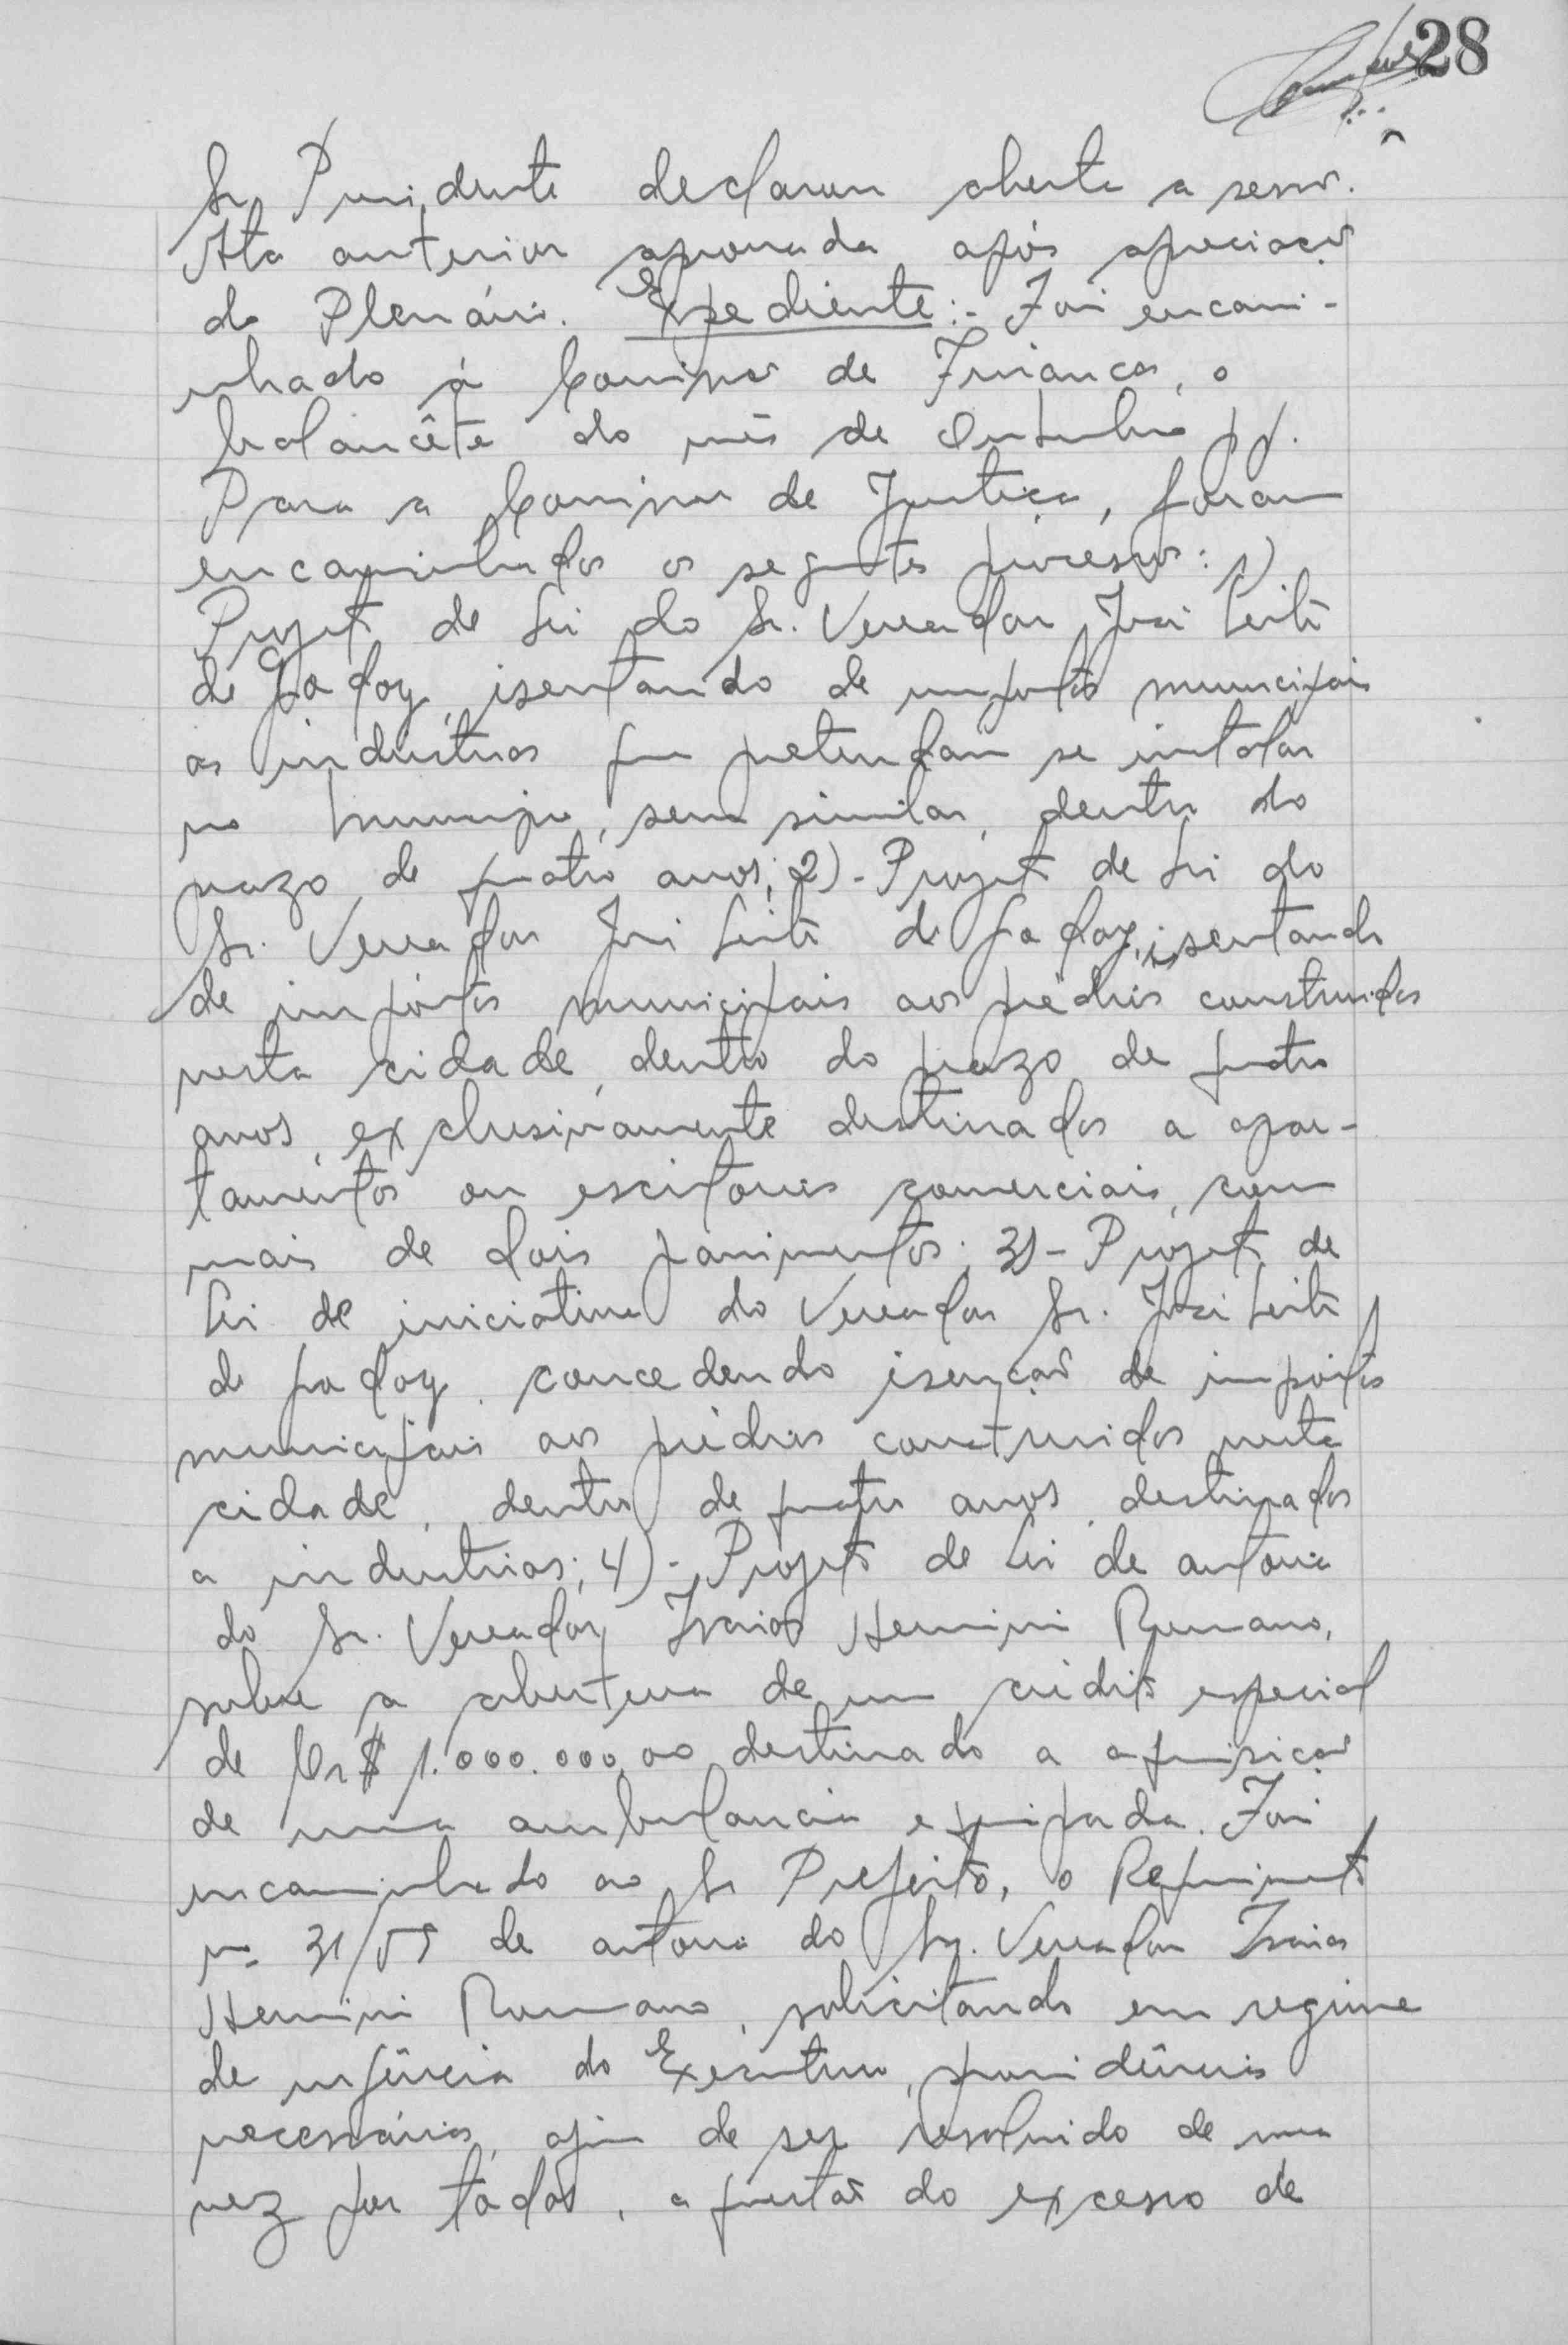 28
Sr. Presidente declarou aberta a sessão.
Ata anterior aprovada após apreciação
do Plenário. Expediente:- Foi encami-
nhado á Comissão de Finanças, o
balancête do mês de Outubro pp.
Para a Comissão de Justiça, foram
encaminhados os seguintes processos: 1)
Projeto de Lei do Sr. Vereador José Leite
de Godoy, isentando de impostos municipais
as industrias que pretendam se instalar
no Municipio, sem similar, dentro do
prazo de quatro anos; 2)- Projeto de Lei do
Sr. Vereador José Leite de Godoy, isentando
de impostos municipais aos prédios construidos
nesta cidade, dentro do prazo de quatro
anos, exclusivamente destinados a apar-
tamentos ou escritorios comerciais, com
mais de dois pavimentos; 3)- Projeto de
Lei de iniciativa do Vereador Sr. José Leite
de Godoy, concedendo isenção de impostos
municipais aos prédios construidos nesta
cidade, dentro de quatro anos, destinados
a industrias; 4)- Projeto de Lei de autoria
do Sr. Vereador Isaias Herminio Romano,
sobre a abertura de um crédito especial
de Cr$ 1.000.000,00 destinado a aquisição
de uma ambulancia equipada. Foi
encaminhado ao Sr. Prefeito, o Requerimento
nº 31/59 de autoria do Sr. Vereador Isaias
Herminio Romano, solicitando em regime
de urgência do Executivo, providências
necessárias, afim de ser resolvido de uma
vez por todas, a questão do excesso de